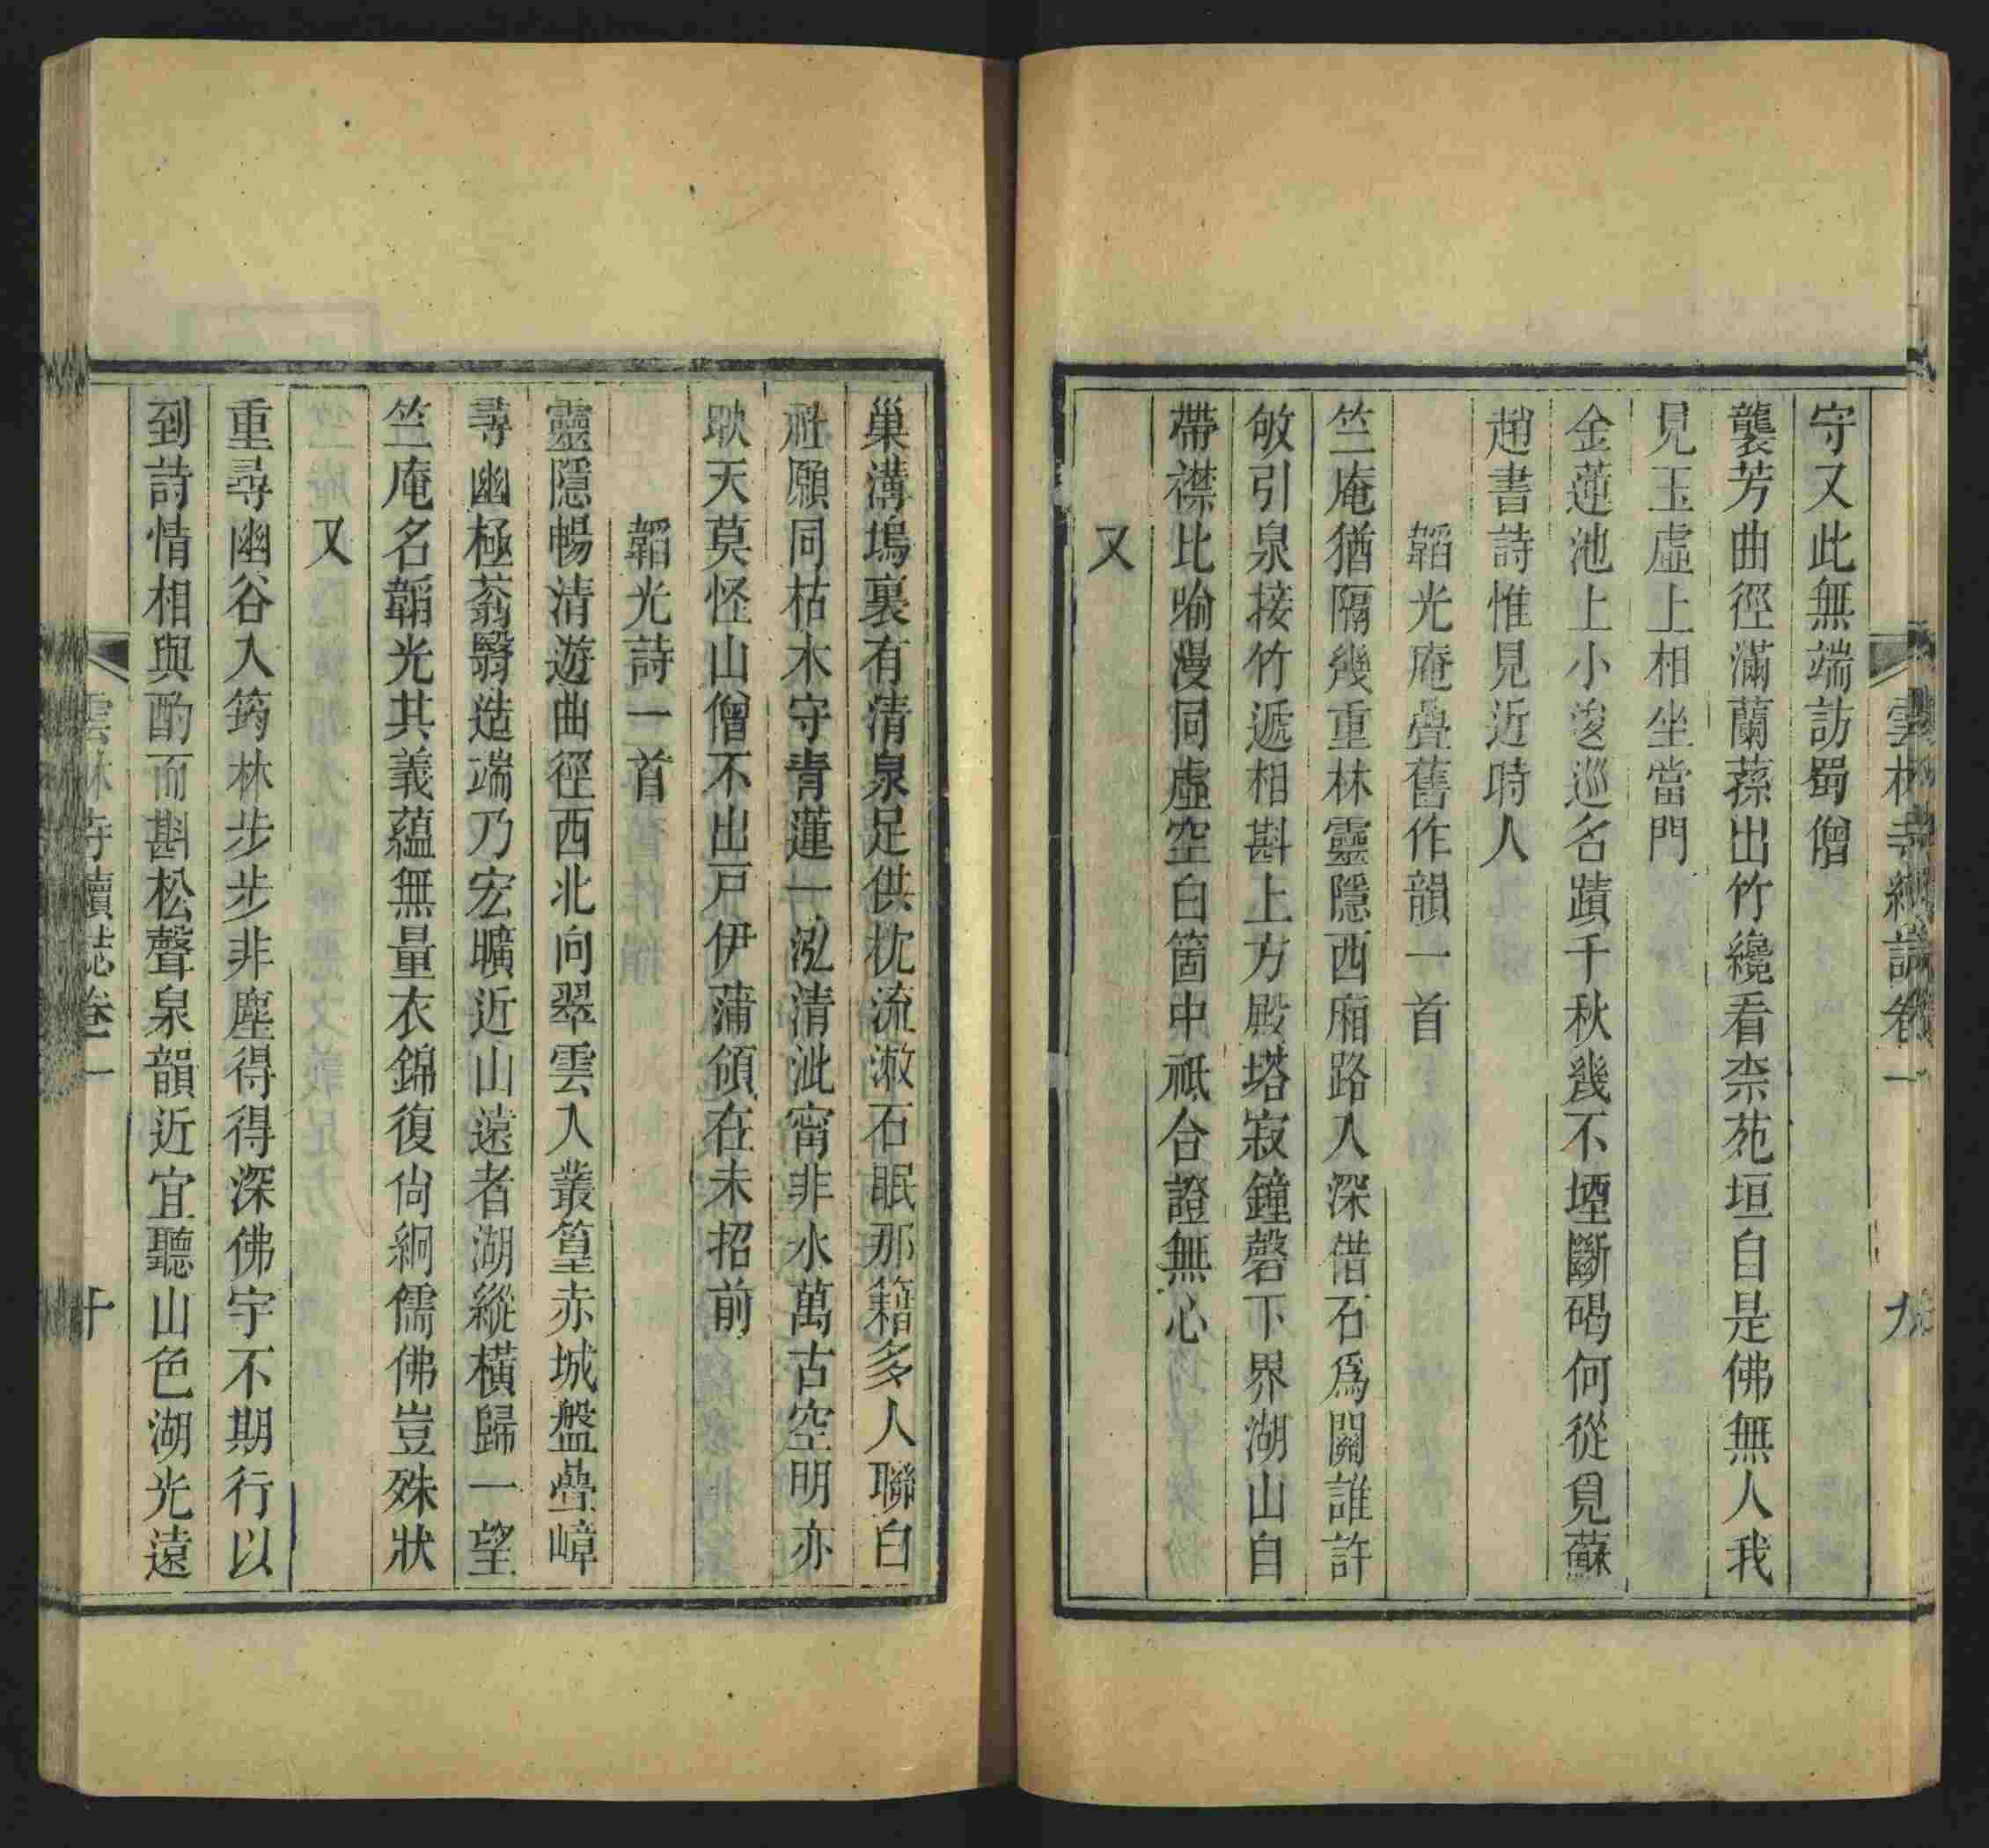 雲林寺續誌卷一 九
守又此無端訪蜀僧
襲芳曲徑滿蘭蓀出竹纔看柰苑垣自是佛無人我
見玉虛上相坐當門
金蓮池上小逡巡名蹟千秋幾不堙斷碣何從覓蘇
趙書詩惟見近時人
韜光庵疊舊作韻一首
竺庵猶隔幾重林靈隱西廂路入深借石為關誰許
敂引泉接竹遞相斟上方殿塔寂鐘磬下界湖山自
帶襟比喻漫同虛空白箇中祇合證無心
又
巢溝塢裏有清泉足供枕流潄石眠那籍多人聯白
社願同枯木守青蓮一泓清泚甯非水萬古空明亦
歟天莫怪山僧不出戸伊蒲頌在未招前
韜光詩一首
靈隱暢清遊曲徑西北向翠雲入叢篁赤城盤疊嶂
尋幽極蓊翳造端乃宏曠近山遠者湖縱橫歸一望
竺庵名韜光其義蘊無量衣錦復尚絅儒佛豈殊狀
又
重尋幽谷入筠林步步非塵得得深佛宇不期行以
到詩情相與酌而斟松聲泉韻近宜聽山色湖光遠
雲林寺續誌卷一 十